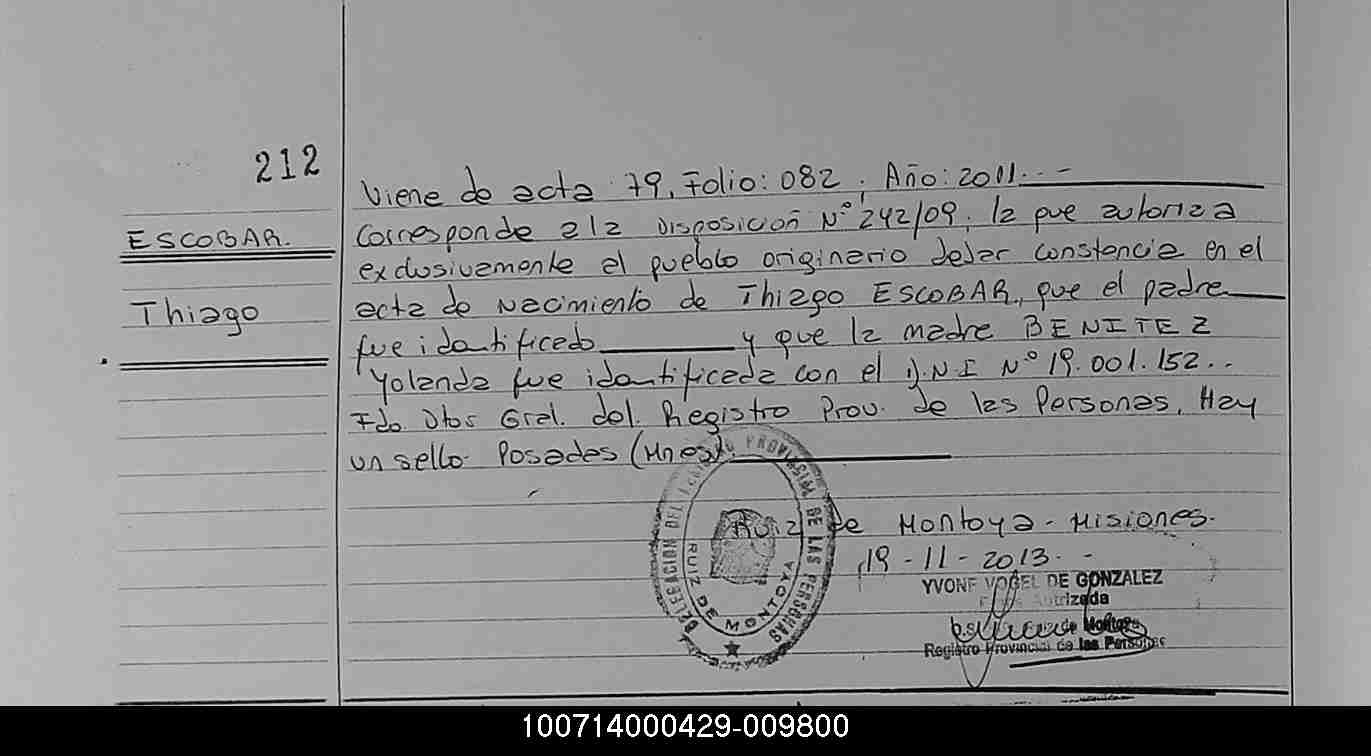 212
ESCOBAR.
Thiago
Viene de acta 79, Folio: 082, Año: 2011.--
Corresponde a la Disposición Nº 242/09, la que autoriza
exclusivamente al pueblo originario dejar constancia en el
acta de Nacimiento de Thiago ESCOBAR, que el padre
fue identificado y que la madre BENITEZ
Yolanda fue identificada con el D.N.I Nº 19.001.152..
Fdo. Dtor Gral. del Registro Prov. de las Personas. Hay
un sello. Posadas (Mnes).
Ruiz de Montoya - Misiones.
19-11-2013.-
DELEGACION DEL REGISTRO PROVINCIAL DE LAS PERSONAS
RUIZ DE MONTOYA
YVONE VOGEL DE GONZALEZ
Autrizada
de Montoya
Registro Provincial de las Personas
100714000429-009800